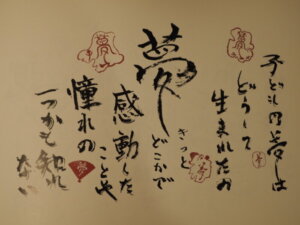 子どもの夢は
どうして
生まれたか
夢
きっと
どこかで
感動した
ことや
憧れの
一つかも知れ
ない